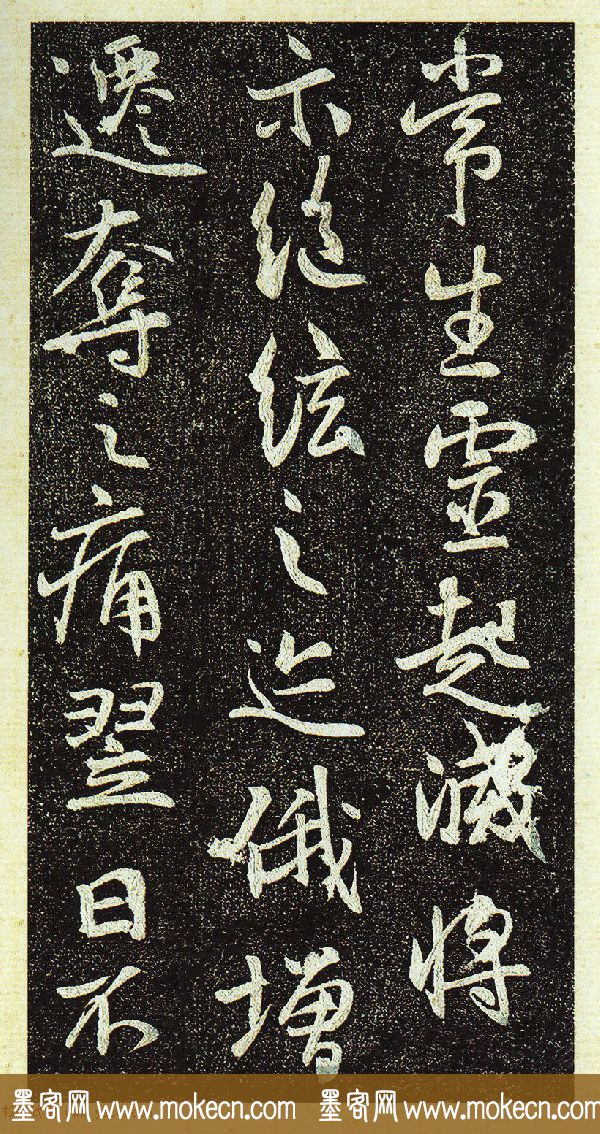 常生靈起滅將
示絕絃之迹俄增
遷奪之痛翌日不
墨客网 www.mokecn.com 墨客网 www.mokecn.com